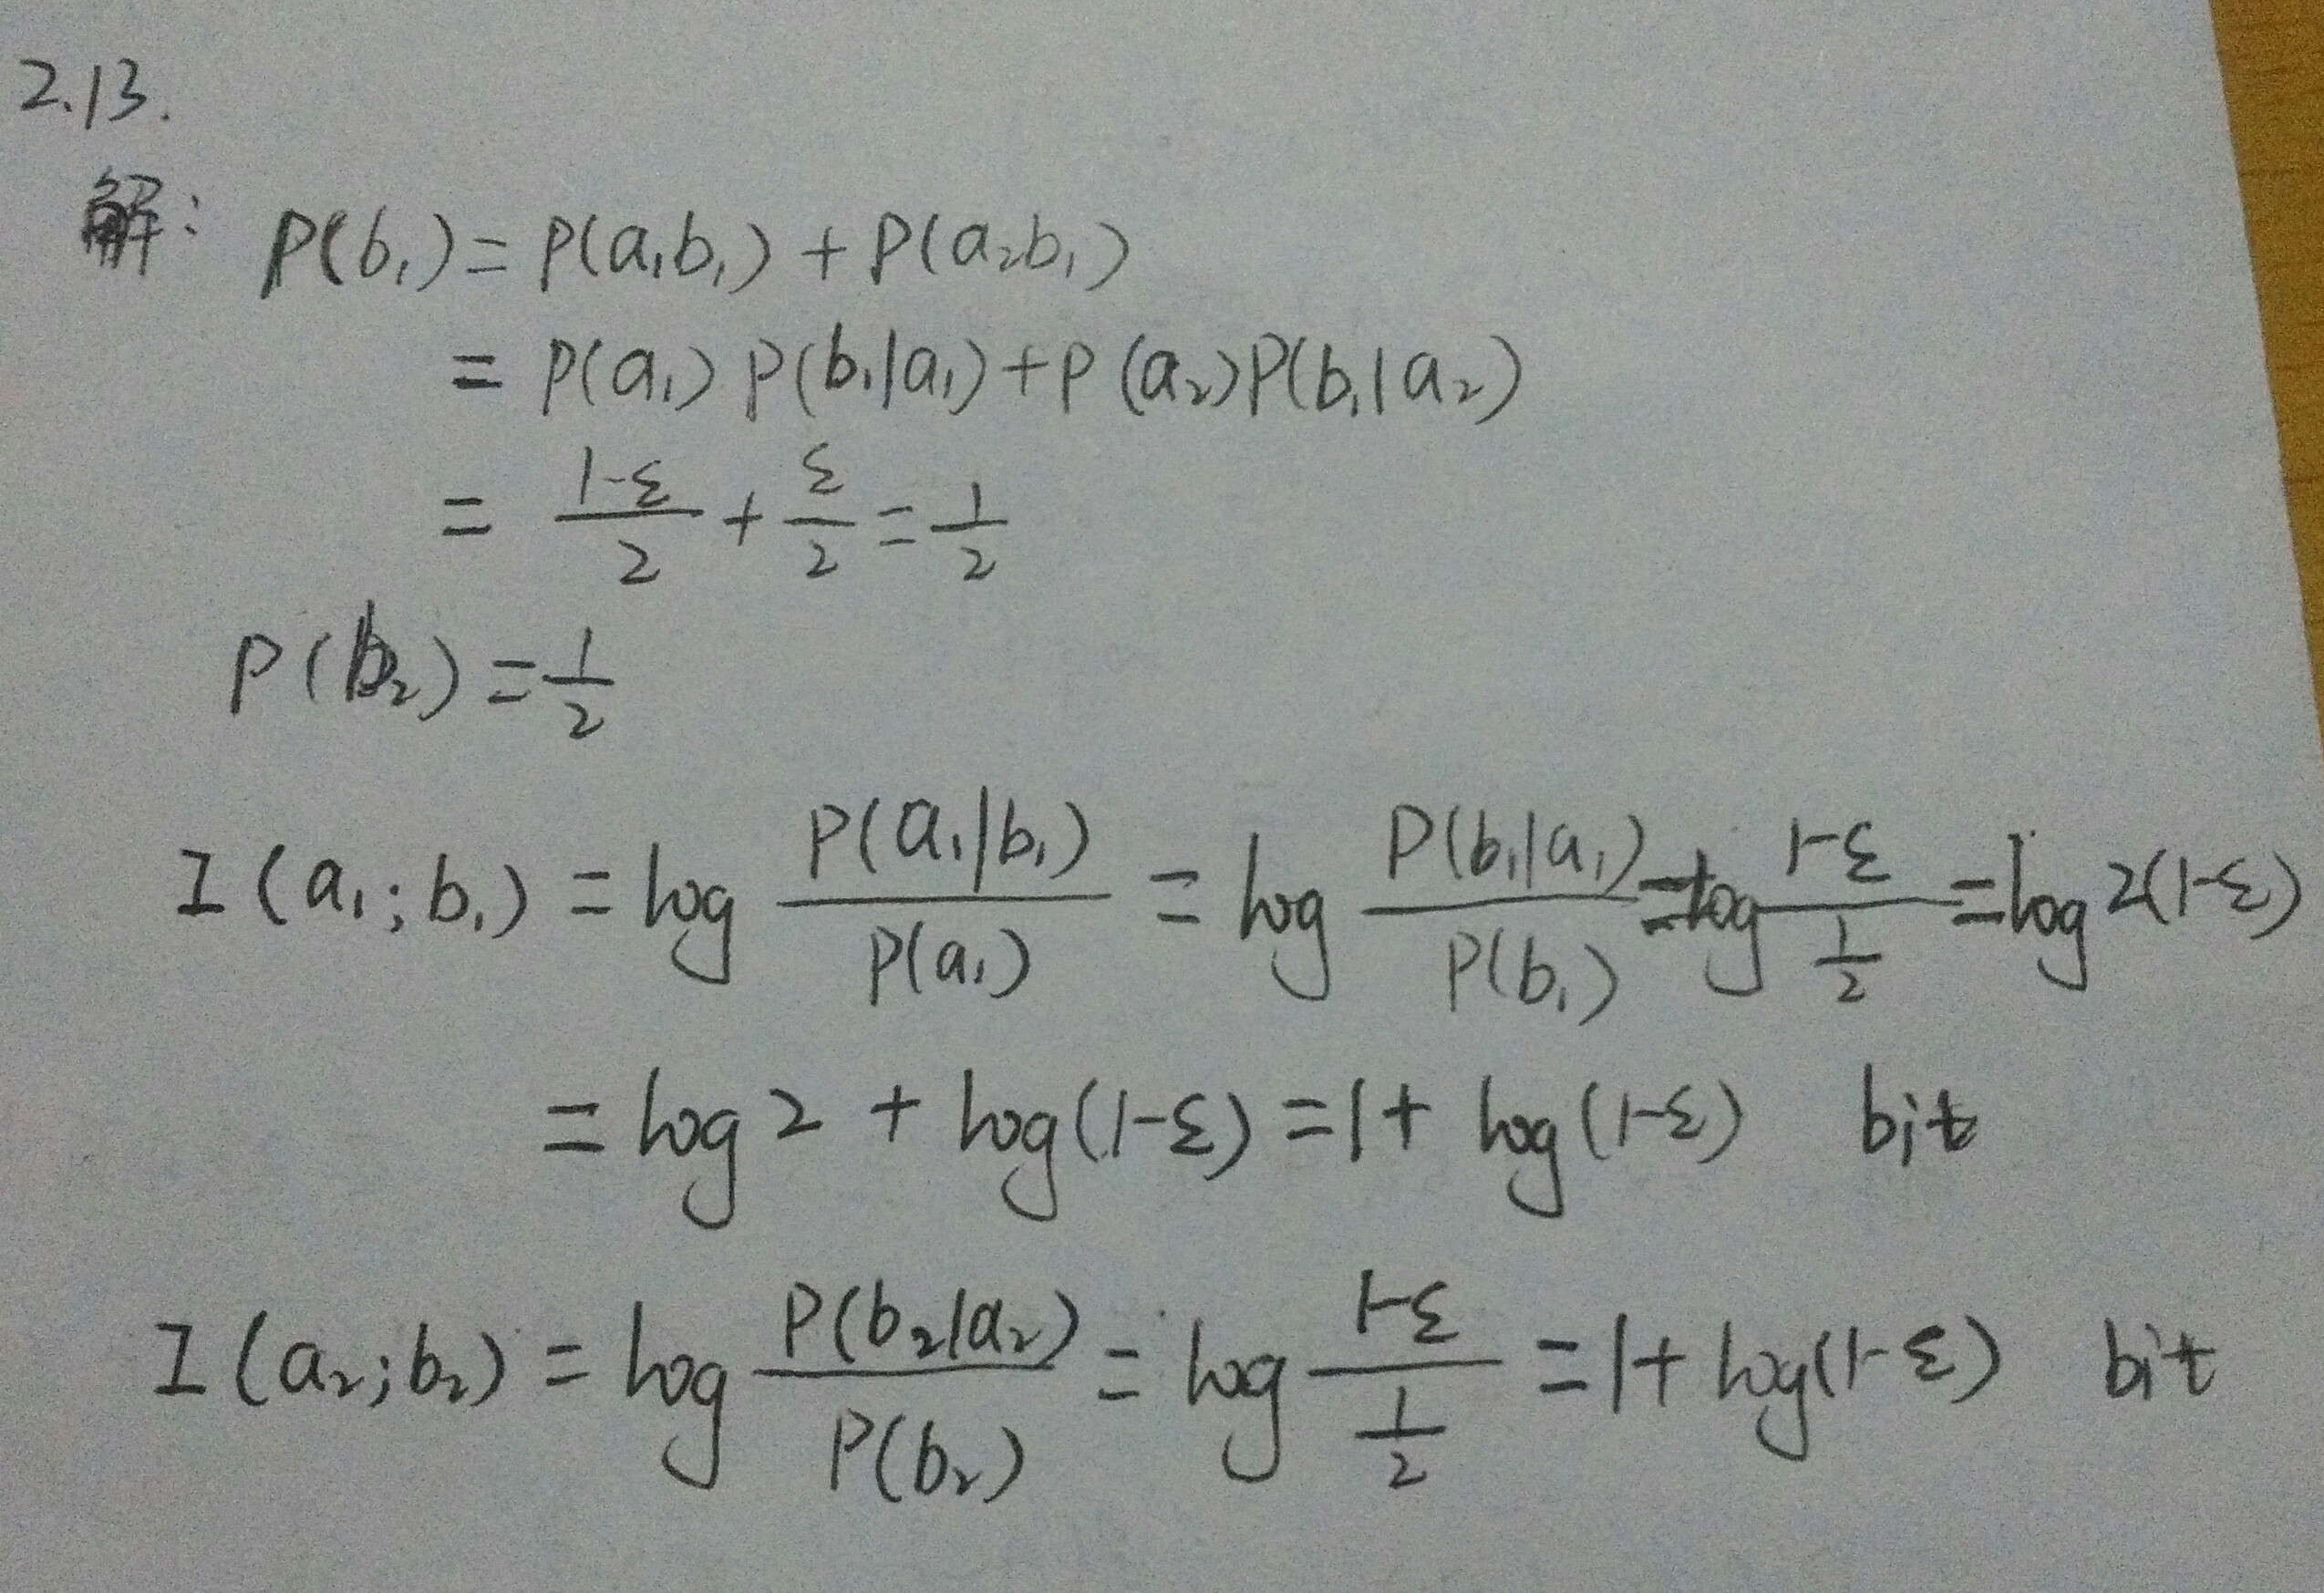 2.13.
解: P(b₁) = P(a₁b₁) + P(a₂b₁)
= P(a₁) P(b₁|a₁) + P(a₂)P(b₁|a₂)
= \frac{1-ε}{2} + \frac{ε}{2} = \frac{1}{2}
P(b₂) = \frac{1}{2}
I(a₁; b₁) = log \frac{P(a₁|b₁)}{P(a₁)} = log \frac{P(b₁|a₁)}{P(b₁)} = log \frac{1-ε}{\frac{1}{2}} = log 2(1-ε)
= log 2 + log(1-ε) = 1 + log(1-ε) bit
I(a₂; b₂) = log \frac{P(b₂|a₂)}{P(b₂)} = log \frac{1-ε}{\frac{1}{2}} = 1 + log(1-ε) bit